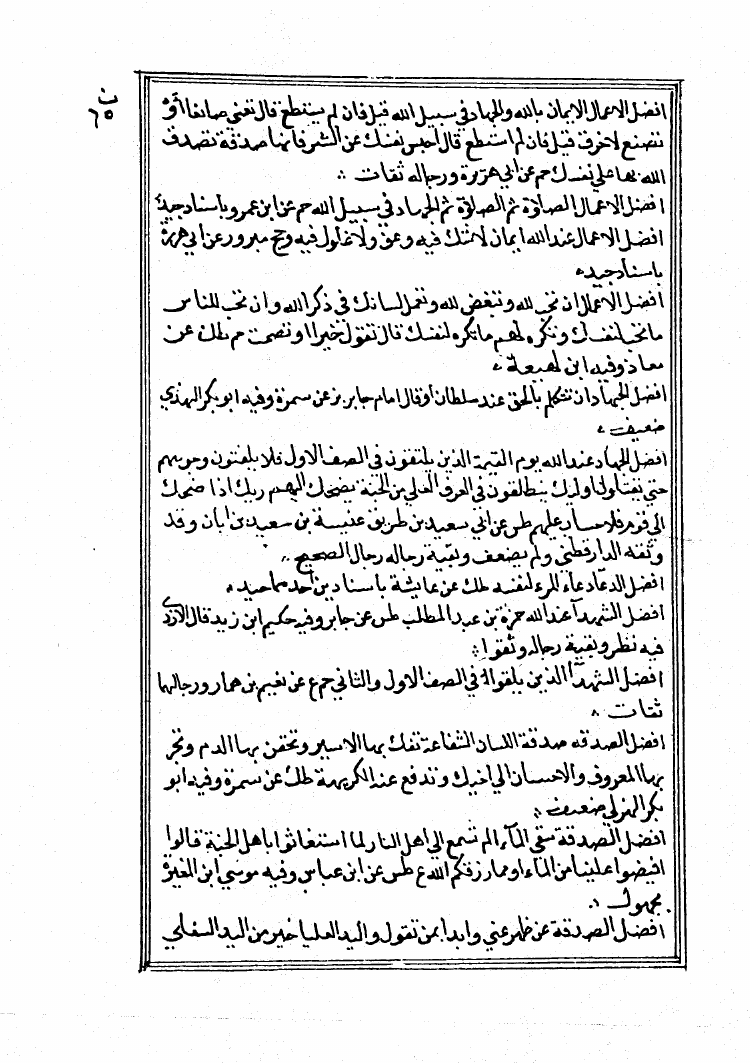 ن
٦٥
افضل الاعمال الايمان بالله والجهاد في سبيل الله قيل فان لم يستطع قال تعين صانعا او
تصنع لاخرق قيل فان لم استطع قال احبس نفسك عن الشر فانها صدقة تصدق
الله بها على نفسك حم عن ابي هريرة ورجاله ثقات
افضل الاعمال الصلوة ثم الصلوة ثم الجهاد في سبيل الله حم عن ابن عمرو باسناد جيد
افضل الاعمال عند الله ايمان لا شك فيه وغزو لا غلول فيه وحج مبرور عن ابي هريرة
باسناد جيد
افضل الاعمال ان تحب لله وتبغض لله وتعمل لسانك في ذكر الله وان تحب للناس
ما تحب لنفسك وتكره لهم ما تكره لنفسك قال تقول خيرا او تصمت حم طك عن
معاذ وفيه ابن لهيعة
افضل الجهاد ان تتكلم بالحق عند سلطان او قال امام جاير بز عن سمرة وفيه ابو بكر الهذلي
ضعيف
افضل الجهاد عند الله يوم القيمة الذين يلتقون في الصف الاول فلا يلفتون وجوههم
حتى يقتلوا اوليك ينطلقون في الغرف العلي من الجنة يضحك اليهم ربك اذا ضحك
الى قوم فلا حساب عليهم طس عن ابي سعيد من طريق عنبسة بن سعيد بن ابان وقد
وثقه الدارقطني ولم يضعف وبقية رجاله رجال الصحيح
افضل الدعا دعاء المرء لنفسه طك عن عايشة باسنادين احدهما جيد
افضل الشهدآ عند الله حمزة بن عبد المطلب طس عن جابر وفيه حكيم ابن زيد قال الازدي
فيه نظر وبقية رجاله وثقوا
افضل الشهدآ الذين يلقوا في الصف الاول والثاني حم ع عن نعيم بن همار ورجالها
ثقات
افضل الصدقه صدقة اللسان الشفاعة تفك بها الاسير وتحقن بها الدم وتجر
بها المعروف والاحسان الى اخيك وتدفع عنه الكريهة طك عن سمرة وفيه ابو
بكر الهذلي ضعيف
افضل الصدقة سقي المآء الم تسمع الى اهل النار لما استغاثوا باهل الجنة قالوا
افيضوا علينا من الماء او مما رزقكم الله ع طس عن ابن عباس وفيه موسى ابن المغيرة
مجهول
افضل الصدقة عن ظهر غني وابدا بمن تعول واليد العليا خير من اليد السفلي